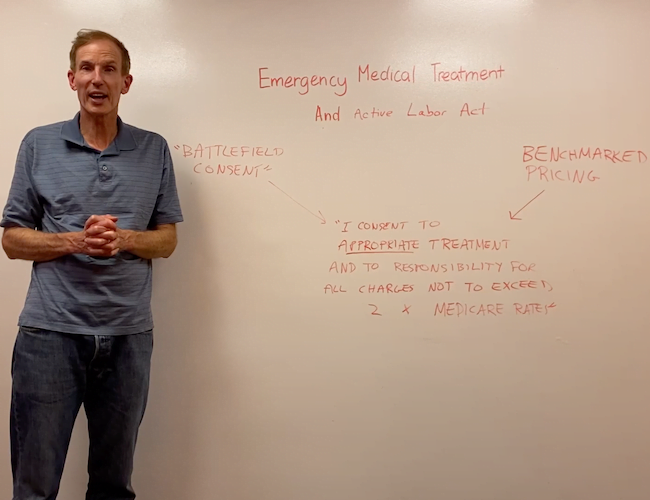 Emergency Medical Treatment
And Active Labor Act
"BATTLEFIELD
CONSENT"
BENCHMARKED
PRICING
"I CONSENT TO
APPROPRIATE TREATMENT
AND TO RESPONSIBILITY FOR
ALL CHARGES NOT TO EXCEED
2 x MEDICARE RATE!"